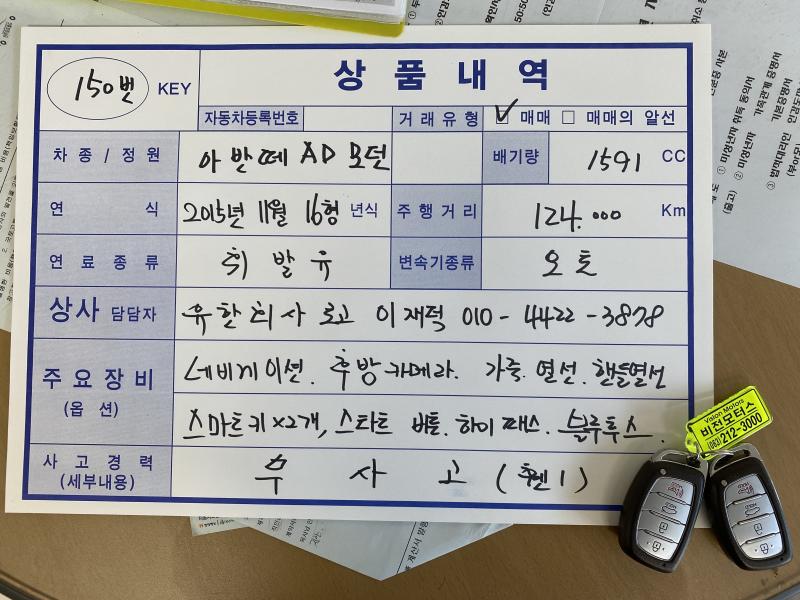 150번 KEY
상품내역
자동차등록번호
거래유형 ☑ 매매 □ 매매의 알선
차종/정원 아반떼 AD 모던 배기량 1591 CC
연 식 2015년 11월 16형 년식 주행거리 124.000 Km
연료종류 휘발유 변속기종류 오토
상사 담담자 유한회사 로고 이재덕 010-4422-3878
주요장비 네비게이션. 후방카메라. 가죽. 열선. 핸들열선
(옵 션) 스마트키×2개, 스타트 버튼. 하이패스. 블루투스.
사고경력 무 사 고 (휀1)
(세부내용)
Vision Motors
비전모터스
(063)212-3000
① 미성년자 취득 동의서
② 미성년자
가족관계 증명서
기본증명서
③ 법적대리인